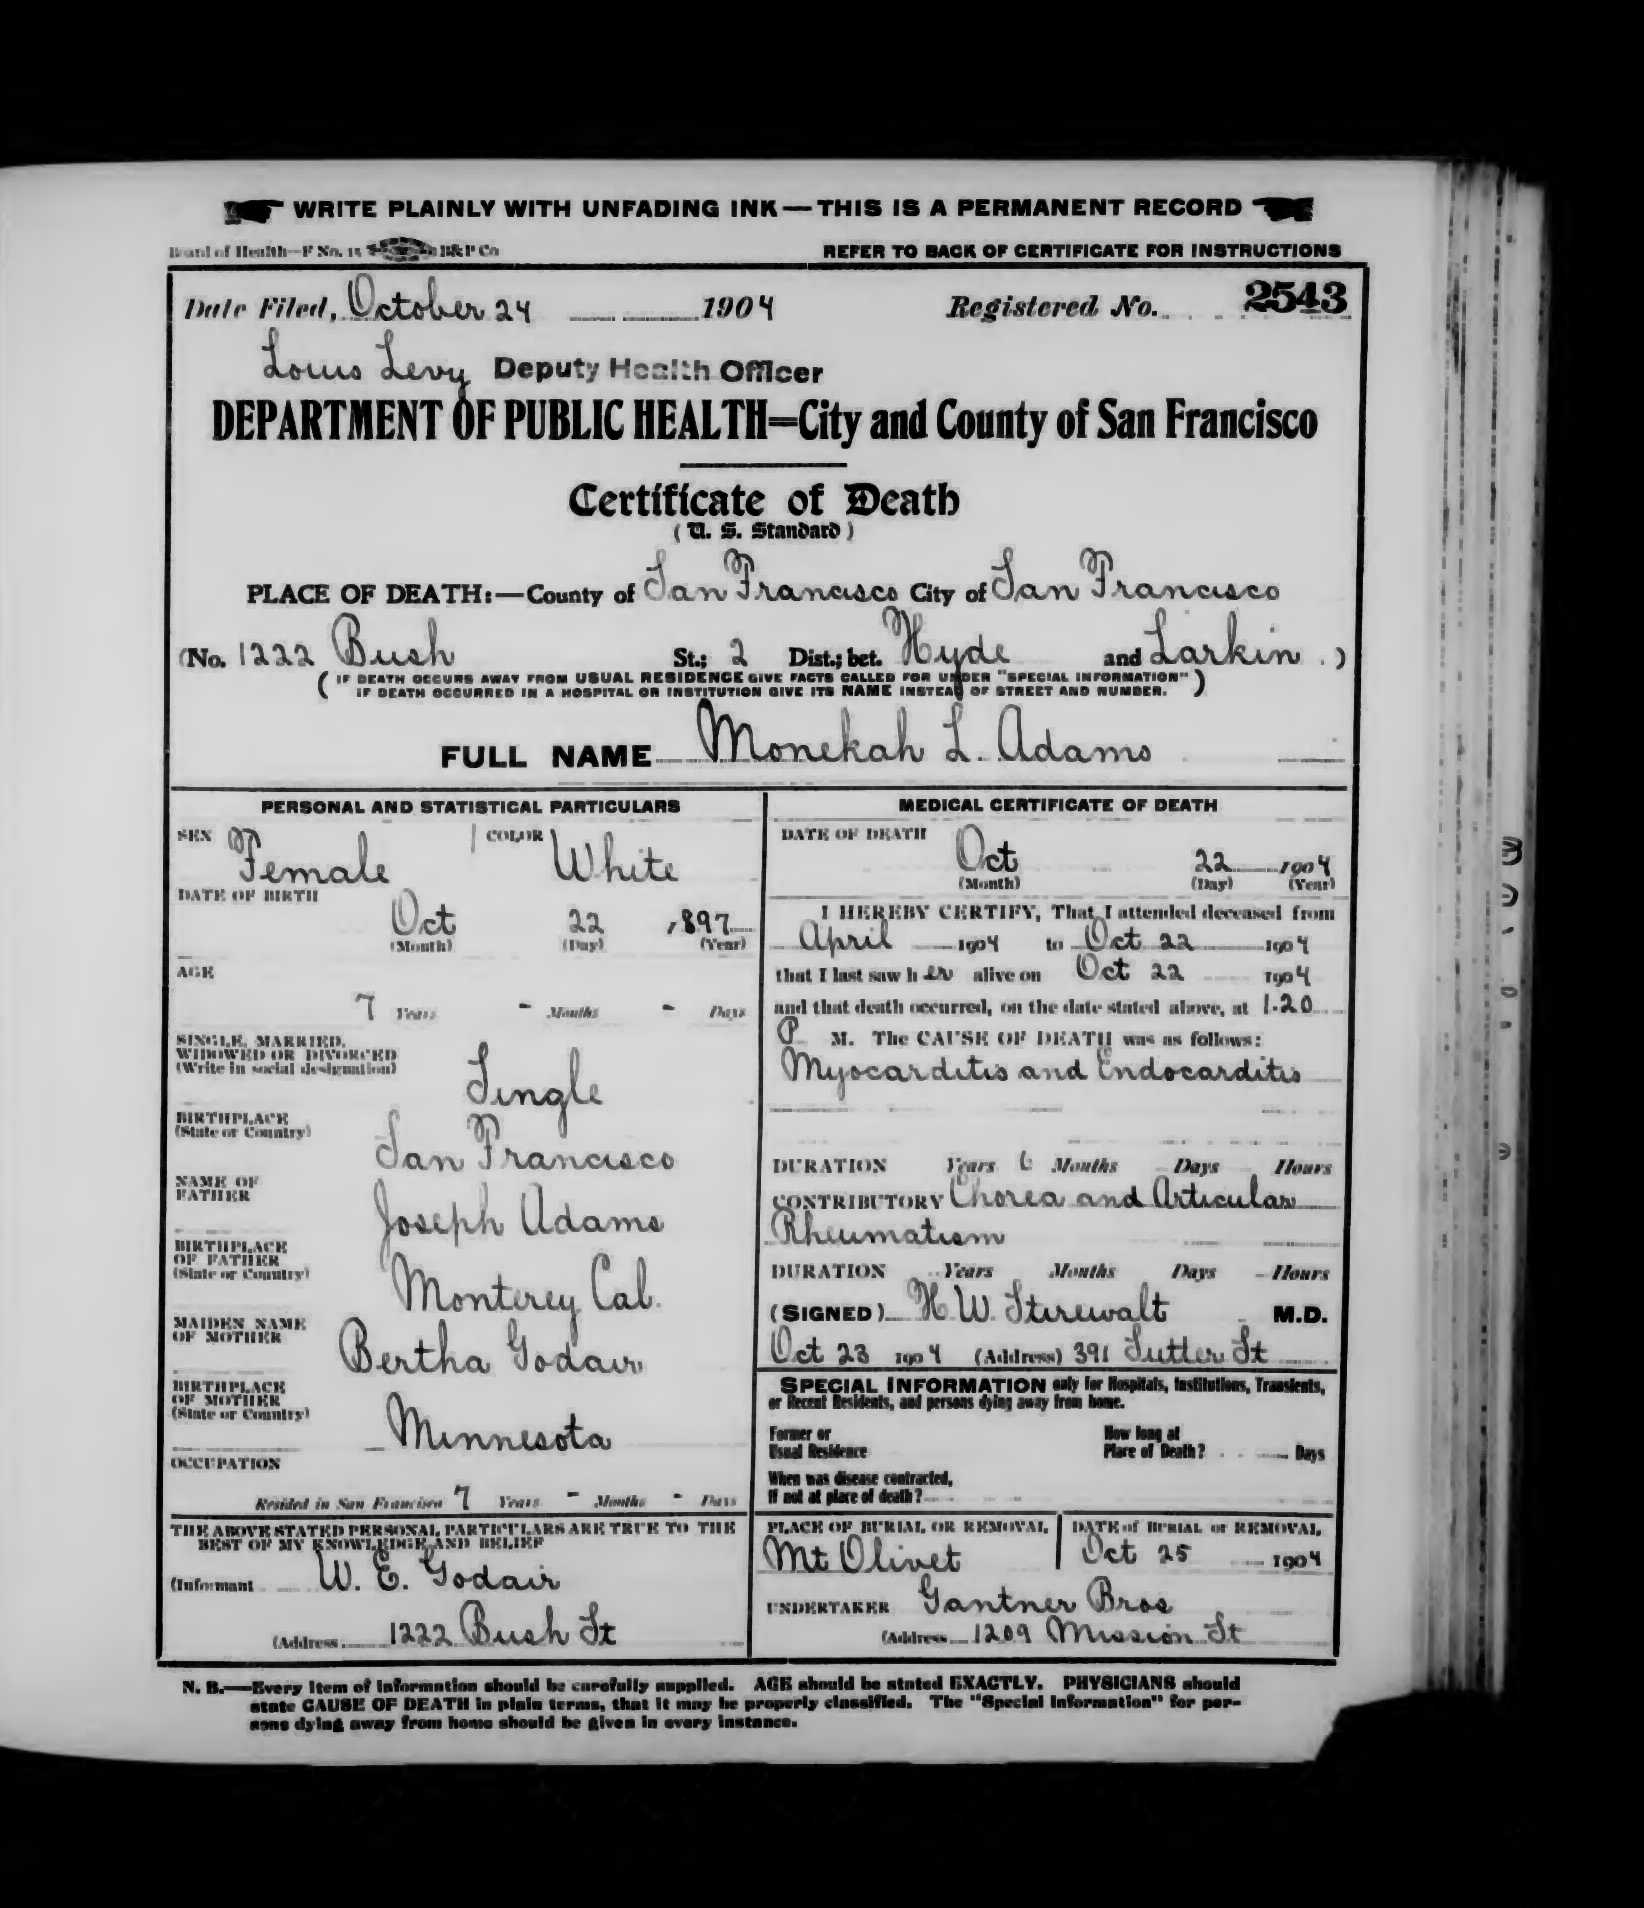 WRITE PLAINLY WITH UNFADING INK — THIS IS A PERMANENT RECORD
Board of Health—F No. 15 B&P Co
REFER TO BACK OF CERTIFICATE FOR INSTRUCTIONS
Date Filed, October 24 1904 Registered No. 2543
Louis Levy Deputy Health Officer
DEPARTMENT OF PUBLIC HEALTH=City and County of San Francisco
Certificate of Death
(U. S. Standard)
PLACE OF DEATH:—County of San Francisco City of San Francisco
(No. 1222 Bush St.; 2 Dist.; bet. Hyde and Larkin.)
(IF DEATH OCCURS AWAY FROM USUAL RESIDENCE GIVE FACTS CALLED FOR UNDER "SPECIAL INFORMATION"
IF DEATH OCCURRED IN A HOSPITAL OR INSTITUTION GIVE ITS NAME INSTEAD OF STREET AND NUMBER.)
FULL NAME Monekah L. Adams
PERSONAL AND STATISTICAL PARTICULARS
SEX Female COLOR White
DATE OF BIRTH
Oct 22 1897
(Month) (Day) (Year)
AGE
7 Years - Months - Days
SINGLE, MARRIED,
WIDOWED OR DIVORCED
(Write in social designation)
Single
BIRTHPLACE
(State or Country)
San Francisco
NAME OF
FATHER
Joseph Adams
BIRTHPLACE
OF FATHER
(State or Country)
Monterey Cal.
MAIDEN NAME
OF MOTHER
Bertha Godair
BIRTHPLACE
OF MOTHER
(State or Country)
Minnesota
OCCUPATION
Resided in San Francisco 7 Years - Months - Days
THE ABOVE STATED PERSONAL PARTICULARS ARE TRUE TO THE
BEST OF MY KNOWLEDGE AND BELIEF
(Informant W. E. Godair
(Address 1222 Bush St
MEDICAL CERTIFICATE OF DEATH
DATE OF DEATH
Oct 22 1904
(Month) (Day) (Year)
I HEREBY CERTIFY, That I attended deceased from
April 1904 to Oct 22 1904
that I last saw her alive on Oct 22 1904
and that death occurred, on the date stated above, at 1.20
P M. The CAUSE OF DEATH was as follows:
Myocarditis and Endocarditis
DURATION Years 6 Months Days Hours
CONTRIBUTORY Chorea and Articular
Rheumatism
DURATION Years Months Days Hours
(SIGNED) H. W. Stirewalt M.D.
Oct 23 1904 (Address) 391 Sutter St
SPECIAL INFORMATION only for Hospitals, Institutions, Transients,
or Recent Residents, and persons dying away from home.
Former or
Usual Residence
How long at
Place of Death? Days
When was disease contracted,
If not at place of death?
PLACE OF BURIAL OR REMOVAL
Mt Olivet
DATE of BURIAL or REMOVAL
Oct 25 1904
UNDERTAKER Gantner Bros
(Address 1209 Mission St
N. B.—Every item of information should be carefully supplied. AGE should be stated EXACTLY. PHYSICIANS should
state CAUSE OF DEATH in plain terms, that it may be properly classified. The "Special Information" for per-
sons dying away from home should be given in every instance.